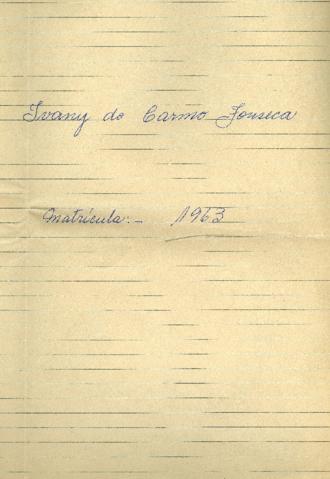 Ivany do Carmo Fonseca
Matrícula:- 1963